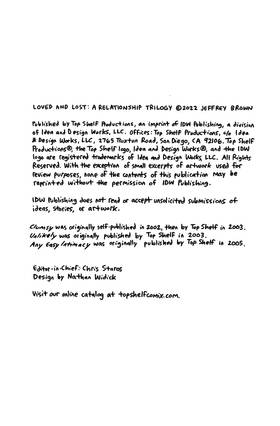 LOVED AND LOST: A RELATIONSHIP TRILOGY ©2022 JEFFREY BROWN
Published by Top Shelf Productions, an imprint of IDW Publishing, a division
of Idea and Design Works, LLC. Offices: Top Shelf Productions, c/o Idea
& Design Works, LLC, 2765 Truxtun Road, San Diego, CA 92106. Top Shelf
Productions®, the Top Shelf logo, Idea and Design Works®, and the IDW
logo are registered trademarks of Idea and Design Works, LLC. All Rights
Reserved. With the exception of small excerpts of artwork used for
review purposes, none of the contents of this publication may be
reprinted without the permission of IDW Publishing.
IDW Publishing does not read or accept unsolicited submissions of
ideas, stories, or artwork.
Clumsy was originally self-published in 2002, then by Top Shelf in 2003.
Unlikely was originally published by Top Shelf in 2003.
Any Easy Intimacy was originally published by Top Shelf in 2005.
Editor-in-Chief: Chris Staros
Design by Nathan Widick
Visit our online catalog at topshelfcomix.com.